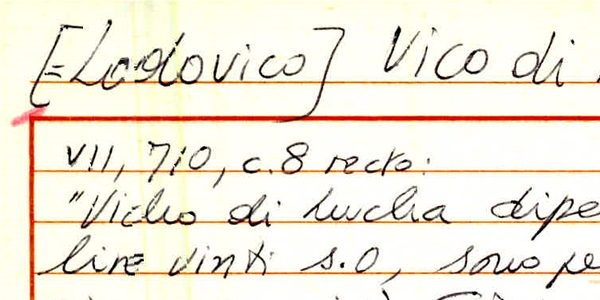 [=Lodovico] Vico di
VII, 710, c.8 recto:
"Vicho di luccha dipe
lire vinti s.0, sono pe